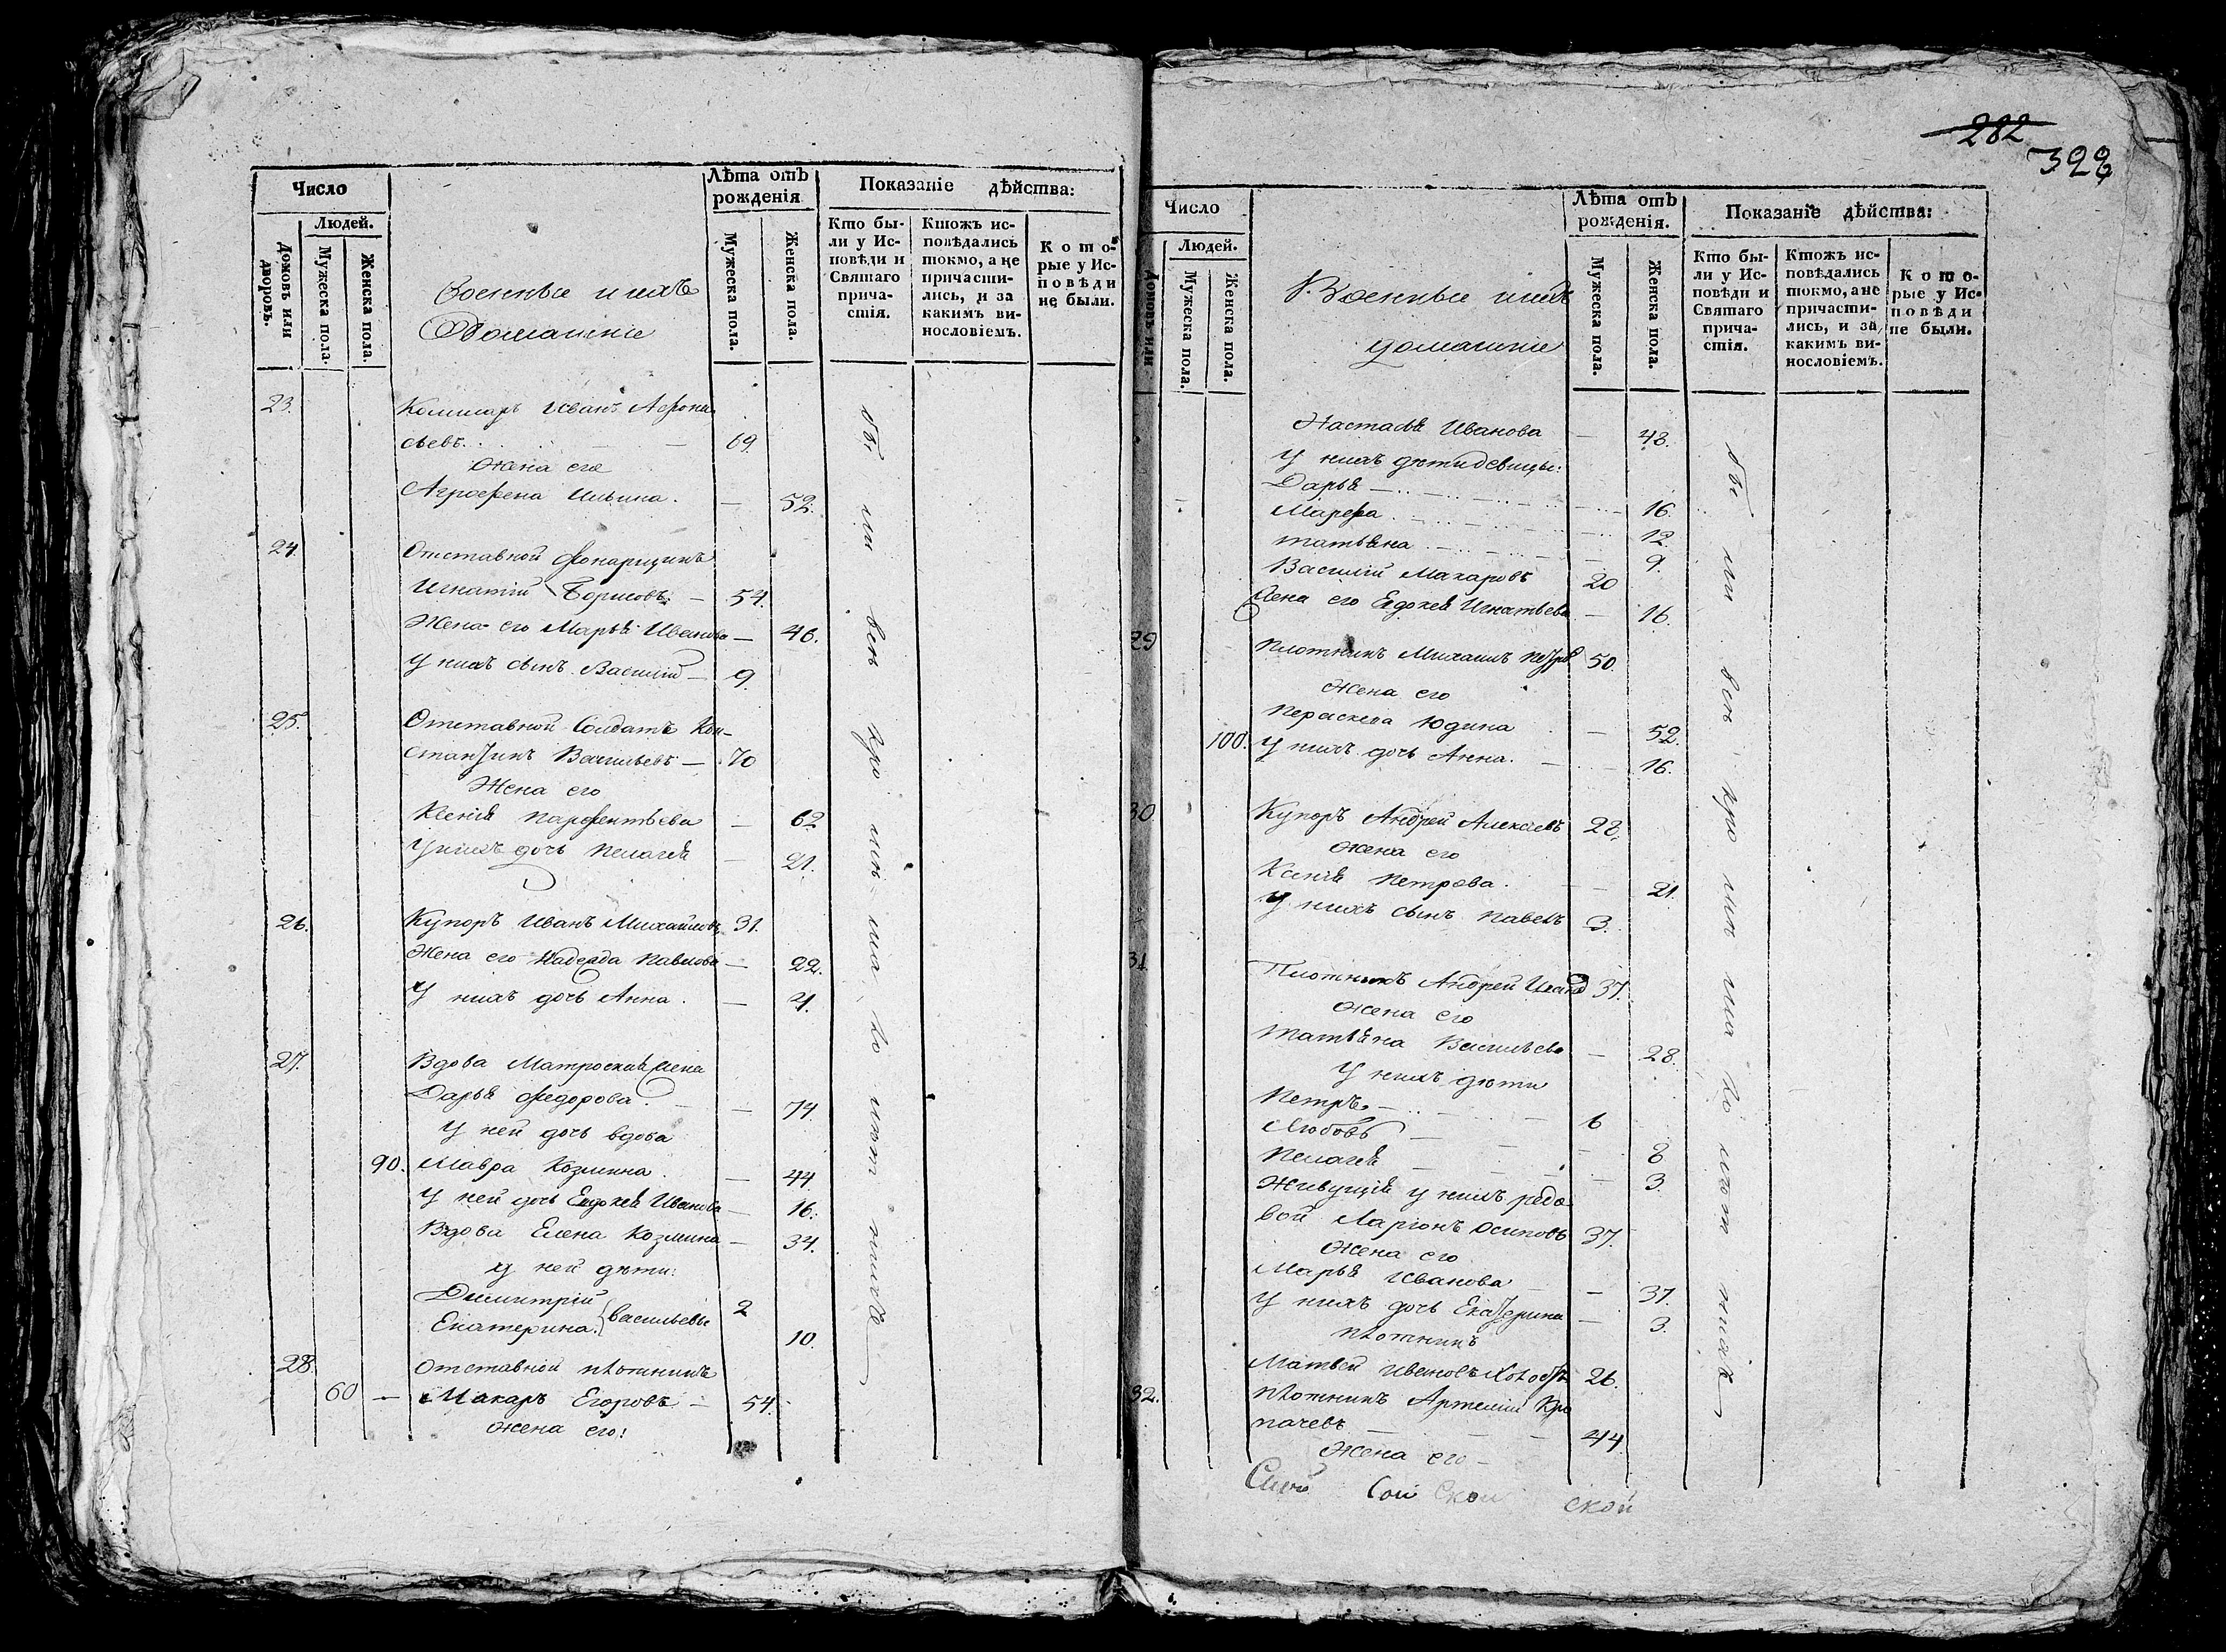 282
328
Число
Людей.
Домовъ или дворовъ.
Мужеска пола.
Женска пола.
Военные и ихъ
Домашніе
Лѣта отъ рожденія
Мужеска пола.
Женска пола.
Показаніе дѣйства:
Кто бы-
ли у Ис-
повѣди и
Святаго
прича-
стія.
Ктожъ ис-
повѣдались
токмо, а не
причасти-
лись, и за
какимъ ви-
нословіемъ.
Кото-
рые у Ис-
повѣди
не были.
23. Коммиаръ Иванъ Афона
сьевъ. 69.
Жена его
Агрофена Ильина. — 52.
24. Отставной фонарщикъ
Игнатій Борисовъ. — 54.
Жена его Марья Иванова — 46.
У нихъ сынъ Василій — 9.
25. Отставной Солдатъ Кон-
стантинъ Васильевъ — 70
Жена его
Ксенія Парфентьева — 62
У нихъ дочь Пелагея — 21.
26. Купоръ Иванъ Михайловъ 31.
Жена его Надежда Павлова — 22.
У нихъ дочь Анна. — 4.
27. Вдова Матроская жена
Дарья Федорова. — 74.
У ней дочь вдова
90. Мавра Козмина. — 44
У ней дочь Евдокея Иванова — 16.
Вдова Елена Козмина — 34.
У ней дѣти:
Димитрій 2
Екатерина. } Васильевы 10.
28. Отставной плотникъ
60 — Макаръ Егоровъ — 54.
Жена его:
Число
Людей.
Домовъ или
Мужеска пола.
Женска пола.
Военные и ихъ
домашніе
Лѣта отъ рожденія.
Мужеска пола.
Женска пола.
Показаніе дѣйства:
Кто бы-
ли у Ис-
повѣди и
Святаго
прича-
стія.
Ктожъ ис-
повѣдались
токмо, а не
причасти-
лись, и за
какимъ ви-
нословіемъ.
Кото-
рые у Ис-
повѣди
не были.
Настасья Иванова — 48.
У нихъ дѣти девицы:
Дарья — 16.
Марфа. — 12.
Татьяна — 9.
Василій Макаровъ 20
Жена его Евдокея Игнатьева — 16.
29 Плотникъ Михаилъ Петровъ 50.
Жена его
Пераскева Юдина — 52.
100. У нихъ дочь Анна. — 16.
30 Купоръ Андрей Алексѣевъ 28.
Жена его
Ксенія Петрова. — 21.
У нихъ сынъ Павелъ 3.
31. Плотникъ Андрей Иванов 37.
Жена его
Татьяна Васильева — 28.
У нихъ дѣти
Петръ. — 6
Любовь — 8
Пелагея — 3.
Живущія у нихъ редо
вой Ларіонъ Осиповъ 37.
Жена его
Марья Иванова — 37.
У нихъ дочь Екатерина — 3.
Плотникъ
Матвей Ивановъ 26.
32. Плотникъ Артемій Кро
пачевъ — 44.
Жена его —
ской